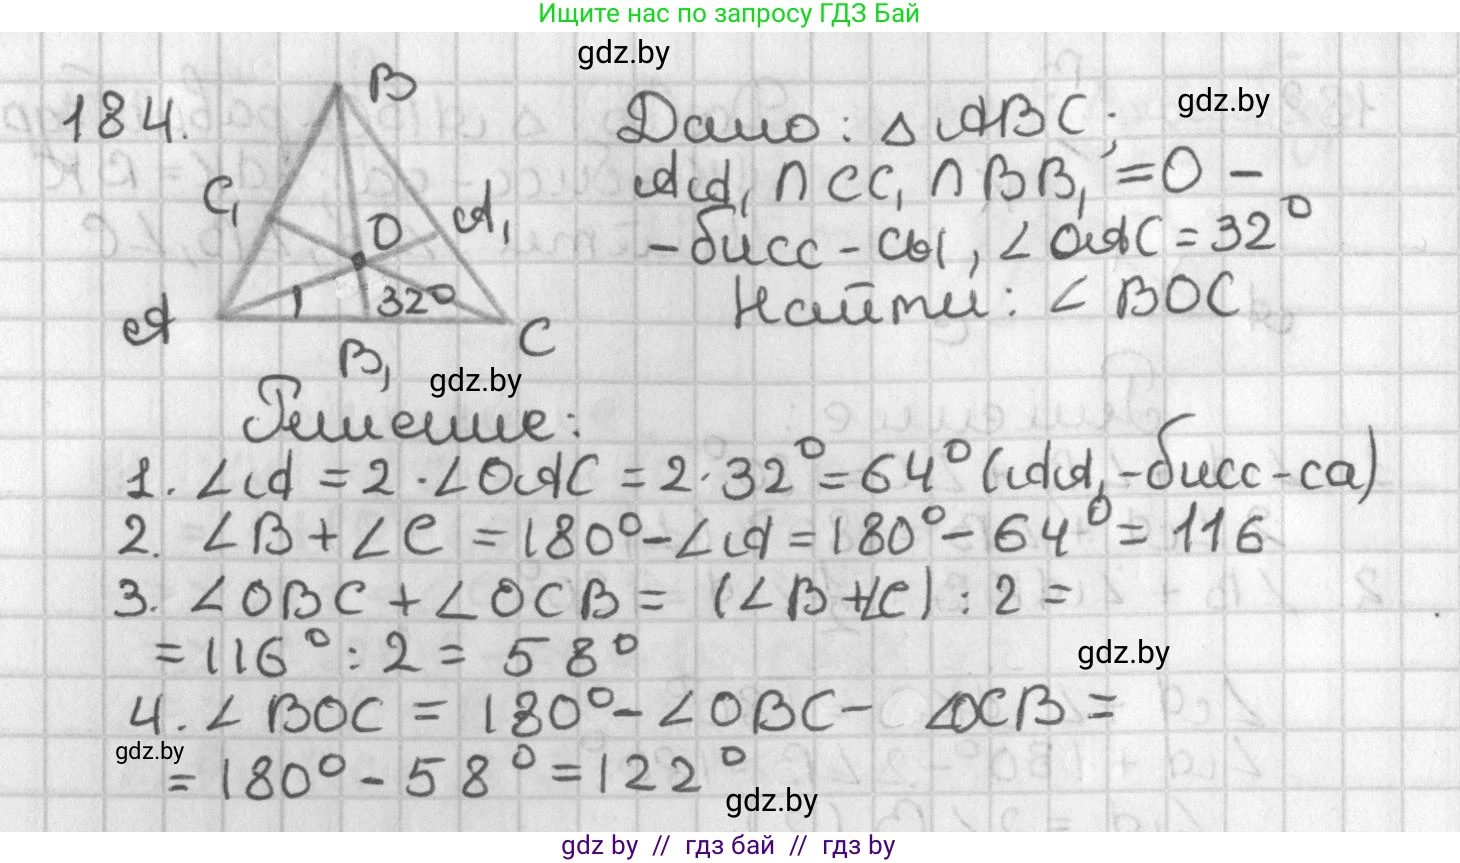 Ищите нас по запросу ГДЗ Бай
gdz.by
184.
B
C₁
O
A₁
32°
A
B₁
C
Дано: △ ABC;
gdz.by
AA₁ ∩ CC₁ ∩ BB₁ = O –
– бисс-сы, ∠OAC = 32°
Найти: ∠BOC
gdz.by
Решение:
1. ∠A = 2 · ∠OAC = 2 · 32° = 64° (AA₁ – бисс-са)
2. ∠B + ∠C = 180° – ∠A = 180° – 64° = 116
3. ∠OBC + ∠OCB = (∠B + ∠C) : 2 =
= 116° : 2 = 58°
gdz.by
4. ∠BOC = 180° – ∠OBC – ∠OCB =
gdz.by
= 180° – 58° = 122°
gdz.by
gdz by // гдз бай // гдз by